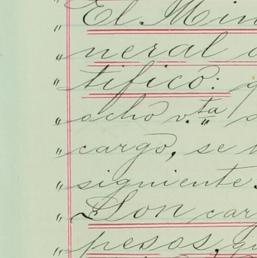 " El Min
" neral
" tifico:
" ocho v.ta
" cargo, se
" siguiente.
" Son car
" pesos, qu